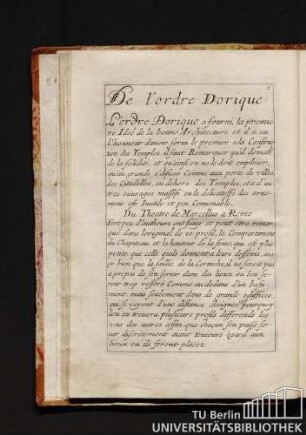 De l'ordre Dorique
L'ordre Dorique a fourni la premie
re Idée de la bonne Architecture et il a eu
l'honneur d'avoir servi le premier a la Construc
tion des Temples il faut Remarquer qu'il
de la solidité, et qu'ainsi on ne le doit emploier,
qu'au grands edifices Comme aux porte de villes,
des Citadelles, au dehors des Temples, et a d'au
tres ouvrages massifs ou la delicatesse des orne
mens est Inutile et peu Convenable.
Du Theatre de Marcellus a Rome
Fort peu d'autheurs ont suivi et peut etre remar
qué dans l'original de ce profil, le Compartement
du Chapiteau et la hauteur de la frise, qui est plus
petite que celle quils donnent a leurs desseins, aus
si bien que la saillie de la Corniche, il ne seroit pas
a propos de s'en servir dans des lieux ou l'on se
roit trop resserré Comme au dedans d'un basti
ment, mais seulement dans de grands edifices,
qui se voyent d'une distance
l'on en trouvera plusieurs profils differends les
uns des autres affin que chacun s'en puisse ser
vir discretement ayant toujours égard aux
lieux ou ils seront placez
TU Berlin
UNIVERSITÄTSBIBLIOTHEK